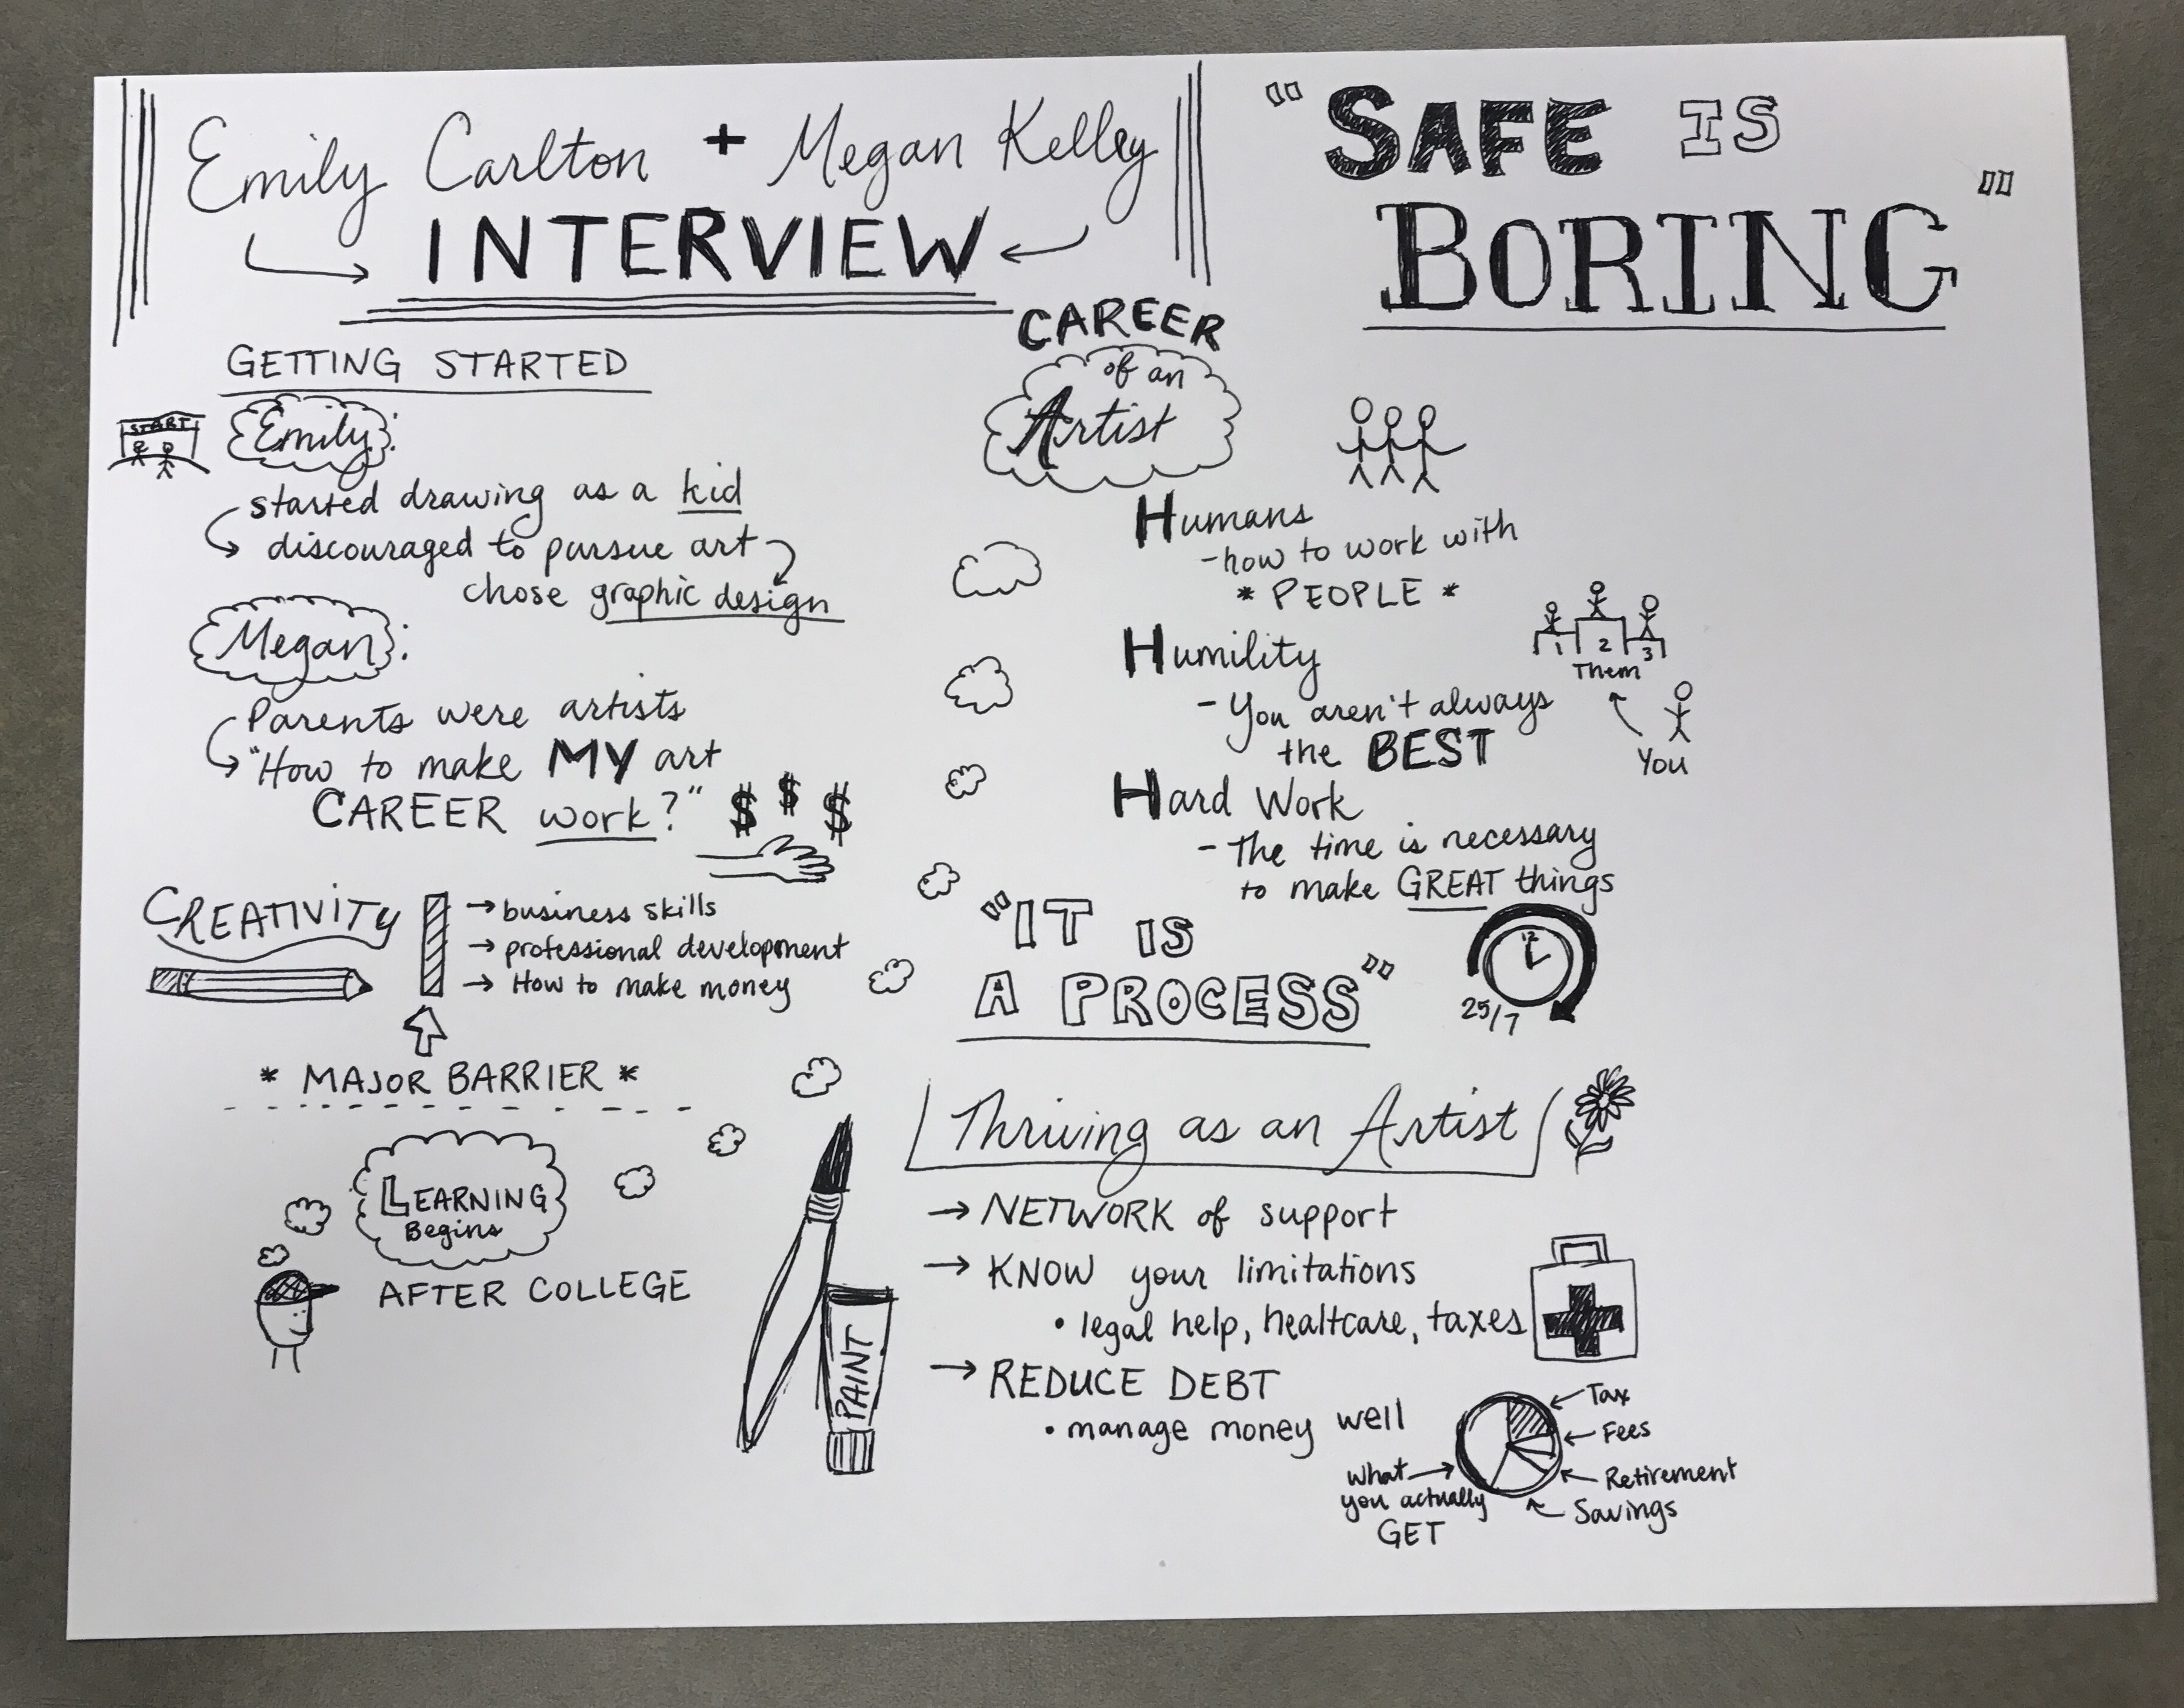 Emily Carlton + Megan Kelley
INTERVIEW
"SAFE IS
BORING"
GETTING STARTED
START
Emily:
started drawing as a kid
discouraged to pursue art
chose graphic design
Megan:
Parents were artists
"How to make MY art
CAREER work?" $ $ $
CREATIVITY
→ business skills
→ professional development
→ How to make money
* MAJOR BARRIER *
LEARNING
Begins
AFTER COLLEGE
CAREER
of an
Artist
Humans
- how to work with
* PEOPLE *
Humility
- You aren't always
the BEST
1 2 3
Them
You
Hard Work
- The time is necessary
to make GREAT things
"IT IS
A PROCESS"
12
25/7
Thriving as an Artist
→ NETWORK of support
→ KNOW your limitations
• legal help, healtcare, taxes
→ REDUCE DEBT
• manage money well
PAINT
Tax
Fees
Retirement
Savings
What
you actually
GET